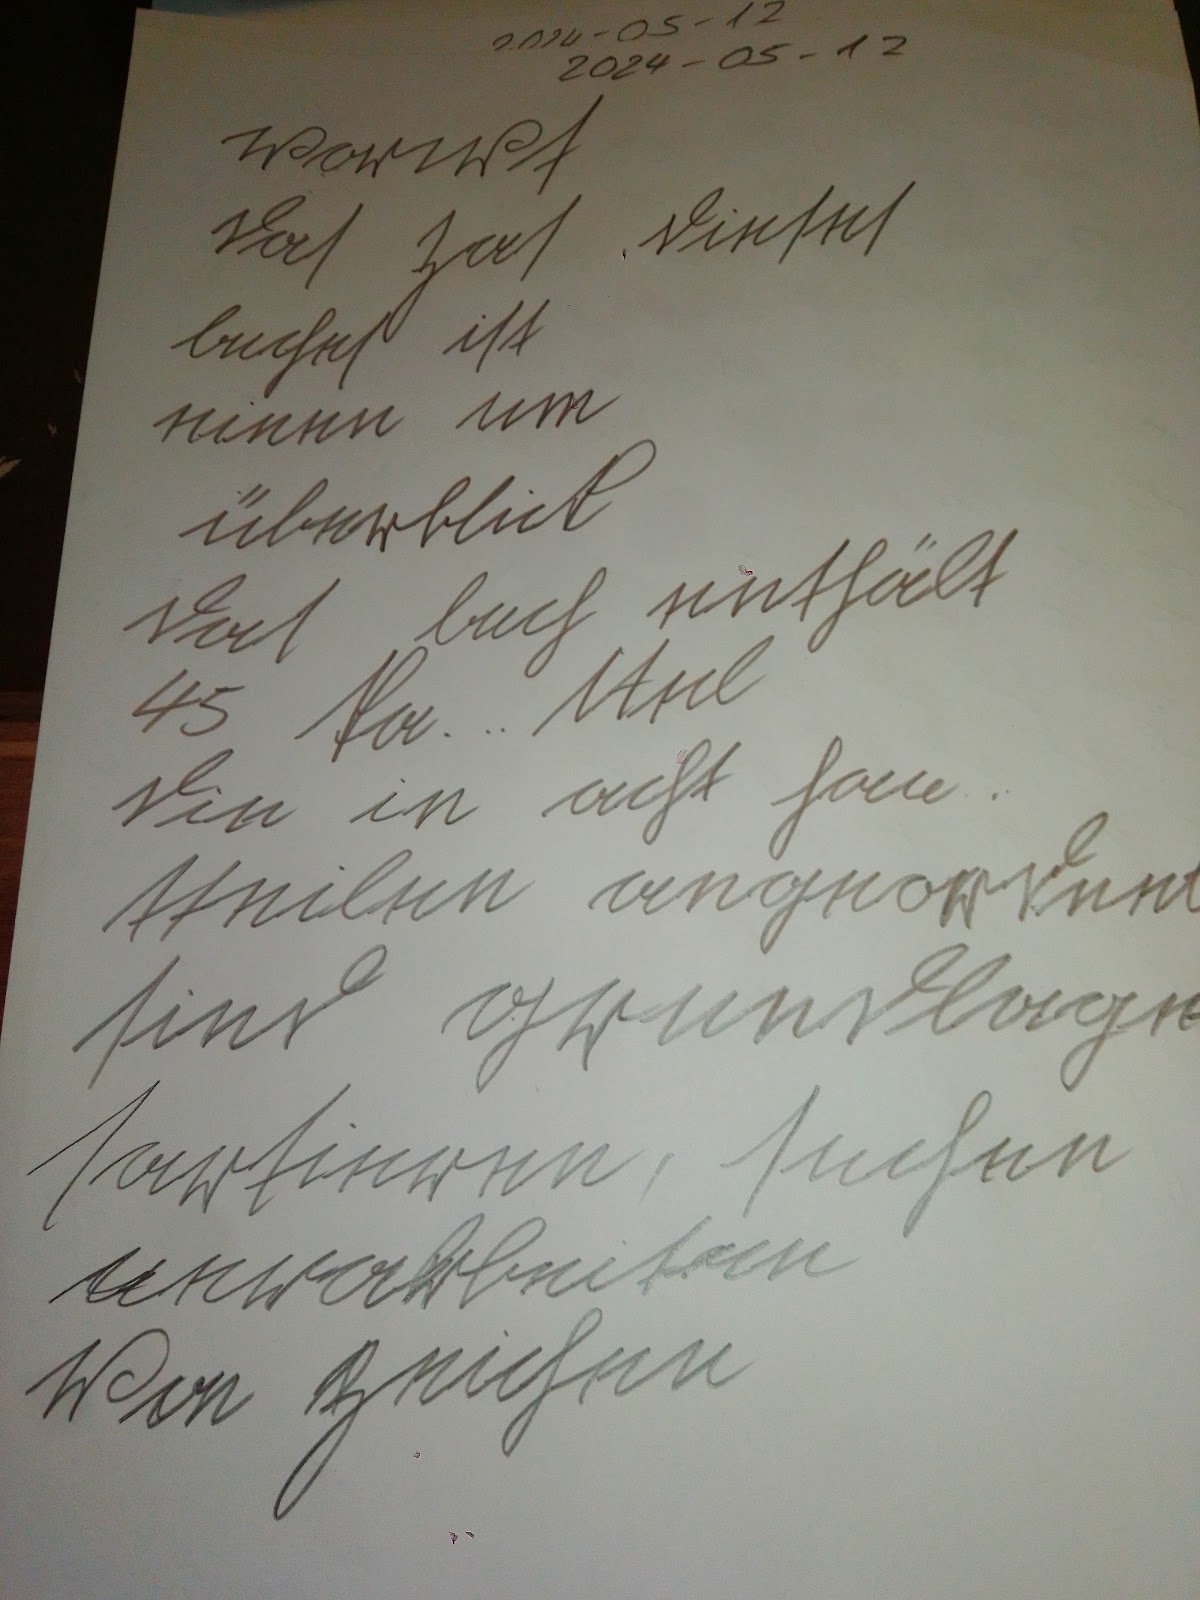 2024-05-12
2024-05-12
Vorwort
das Zal dieses
buches ist
einen um
überblick
das buch enthält
45 Pa... Stel
die in acht hau..
theilen angeordnet
sind Grundlage
sortieren, suchen
verarbeiten
Von Zeichen